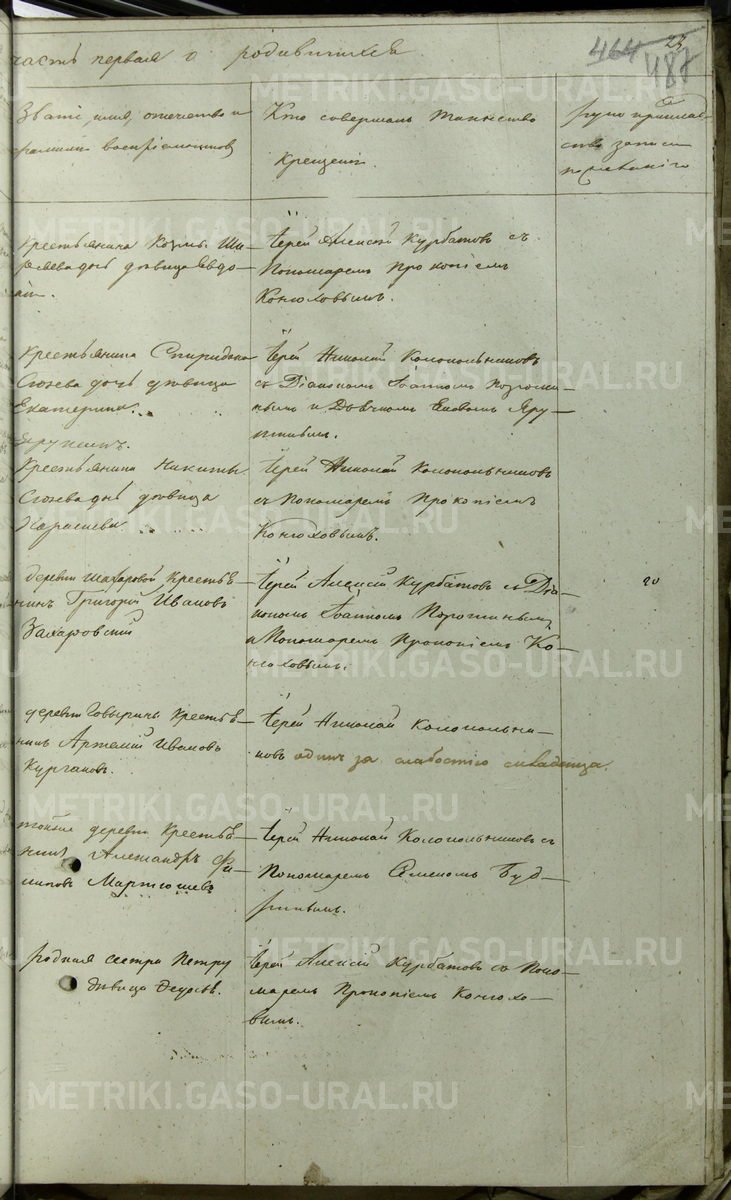 часть первая о родившихся
464 23
487
Званіе, имя, отечество и
фамилія воспріемниковъ
Кто совершалъ таинство
крещенія.
руко приклад-
ство записи
по желанію
Крестьянина Козмы Ши-
дочь девица Евдо-
кія.
Іерей Алексей Курбатовъ съ
Пономаремъ Прокопіемъ
Конюховымъ.
Крестьянина Спиридона
дочь девица
Екатерина.
Іерей Николай Колокольниковъ
съ Діакономъ Іоанномъ
и Дьячкомъ Яру-
шинымъ.
Крестьянина Никиты
дочь девица
Іерей Николай Колокольниковъ
съ Пономаремъ Прокопіемъ
Конюховымъ.
деревни Шахаровой Крестья-
нинъ Григорій Ивановъ
Захаровскій
Іерей Алексій Курбатовъ съ Діа-
кономъ Іоанномъ Порошинымъ
и Пономаремъ Прокопіемъ Ко-
нюховымъ.
деревни Говырины Крестья-
нинъ Артемій Ивановъ
Кургановъ.
Іерей Николай Колокольни-
ковъ одинъ за слабостію младенца.
тойже деревни Крестья-
нинъ Александръ Фи-
липовъ Мартюшевъ
Іерей Николай Колокольниковъ съ
Пономаремъ Семеномъ Буд-
ринымъ.
родная сестра Петру
девица
Іерей Алексій Курбатовъ съ Поно-
маремъ Прокопіемъ Конюхо-
вымъ.
METRIKI.GASO-URAL.RU